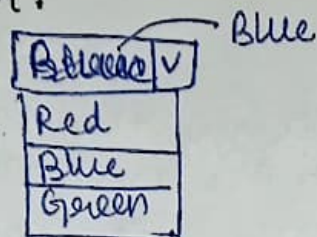 Blue
v
Red
Blue
Green